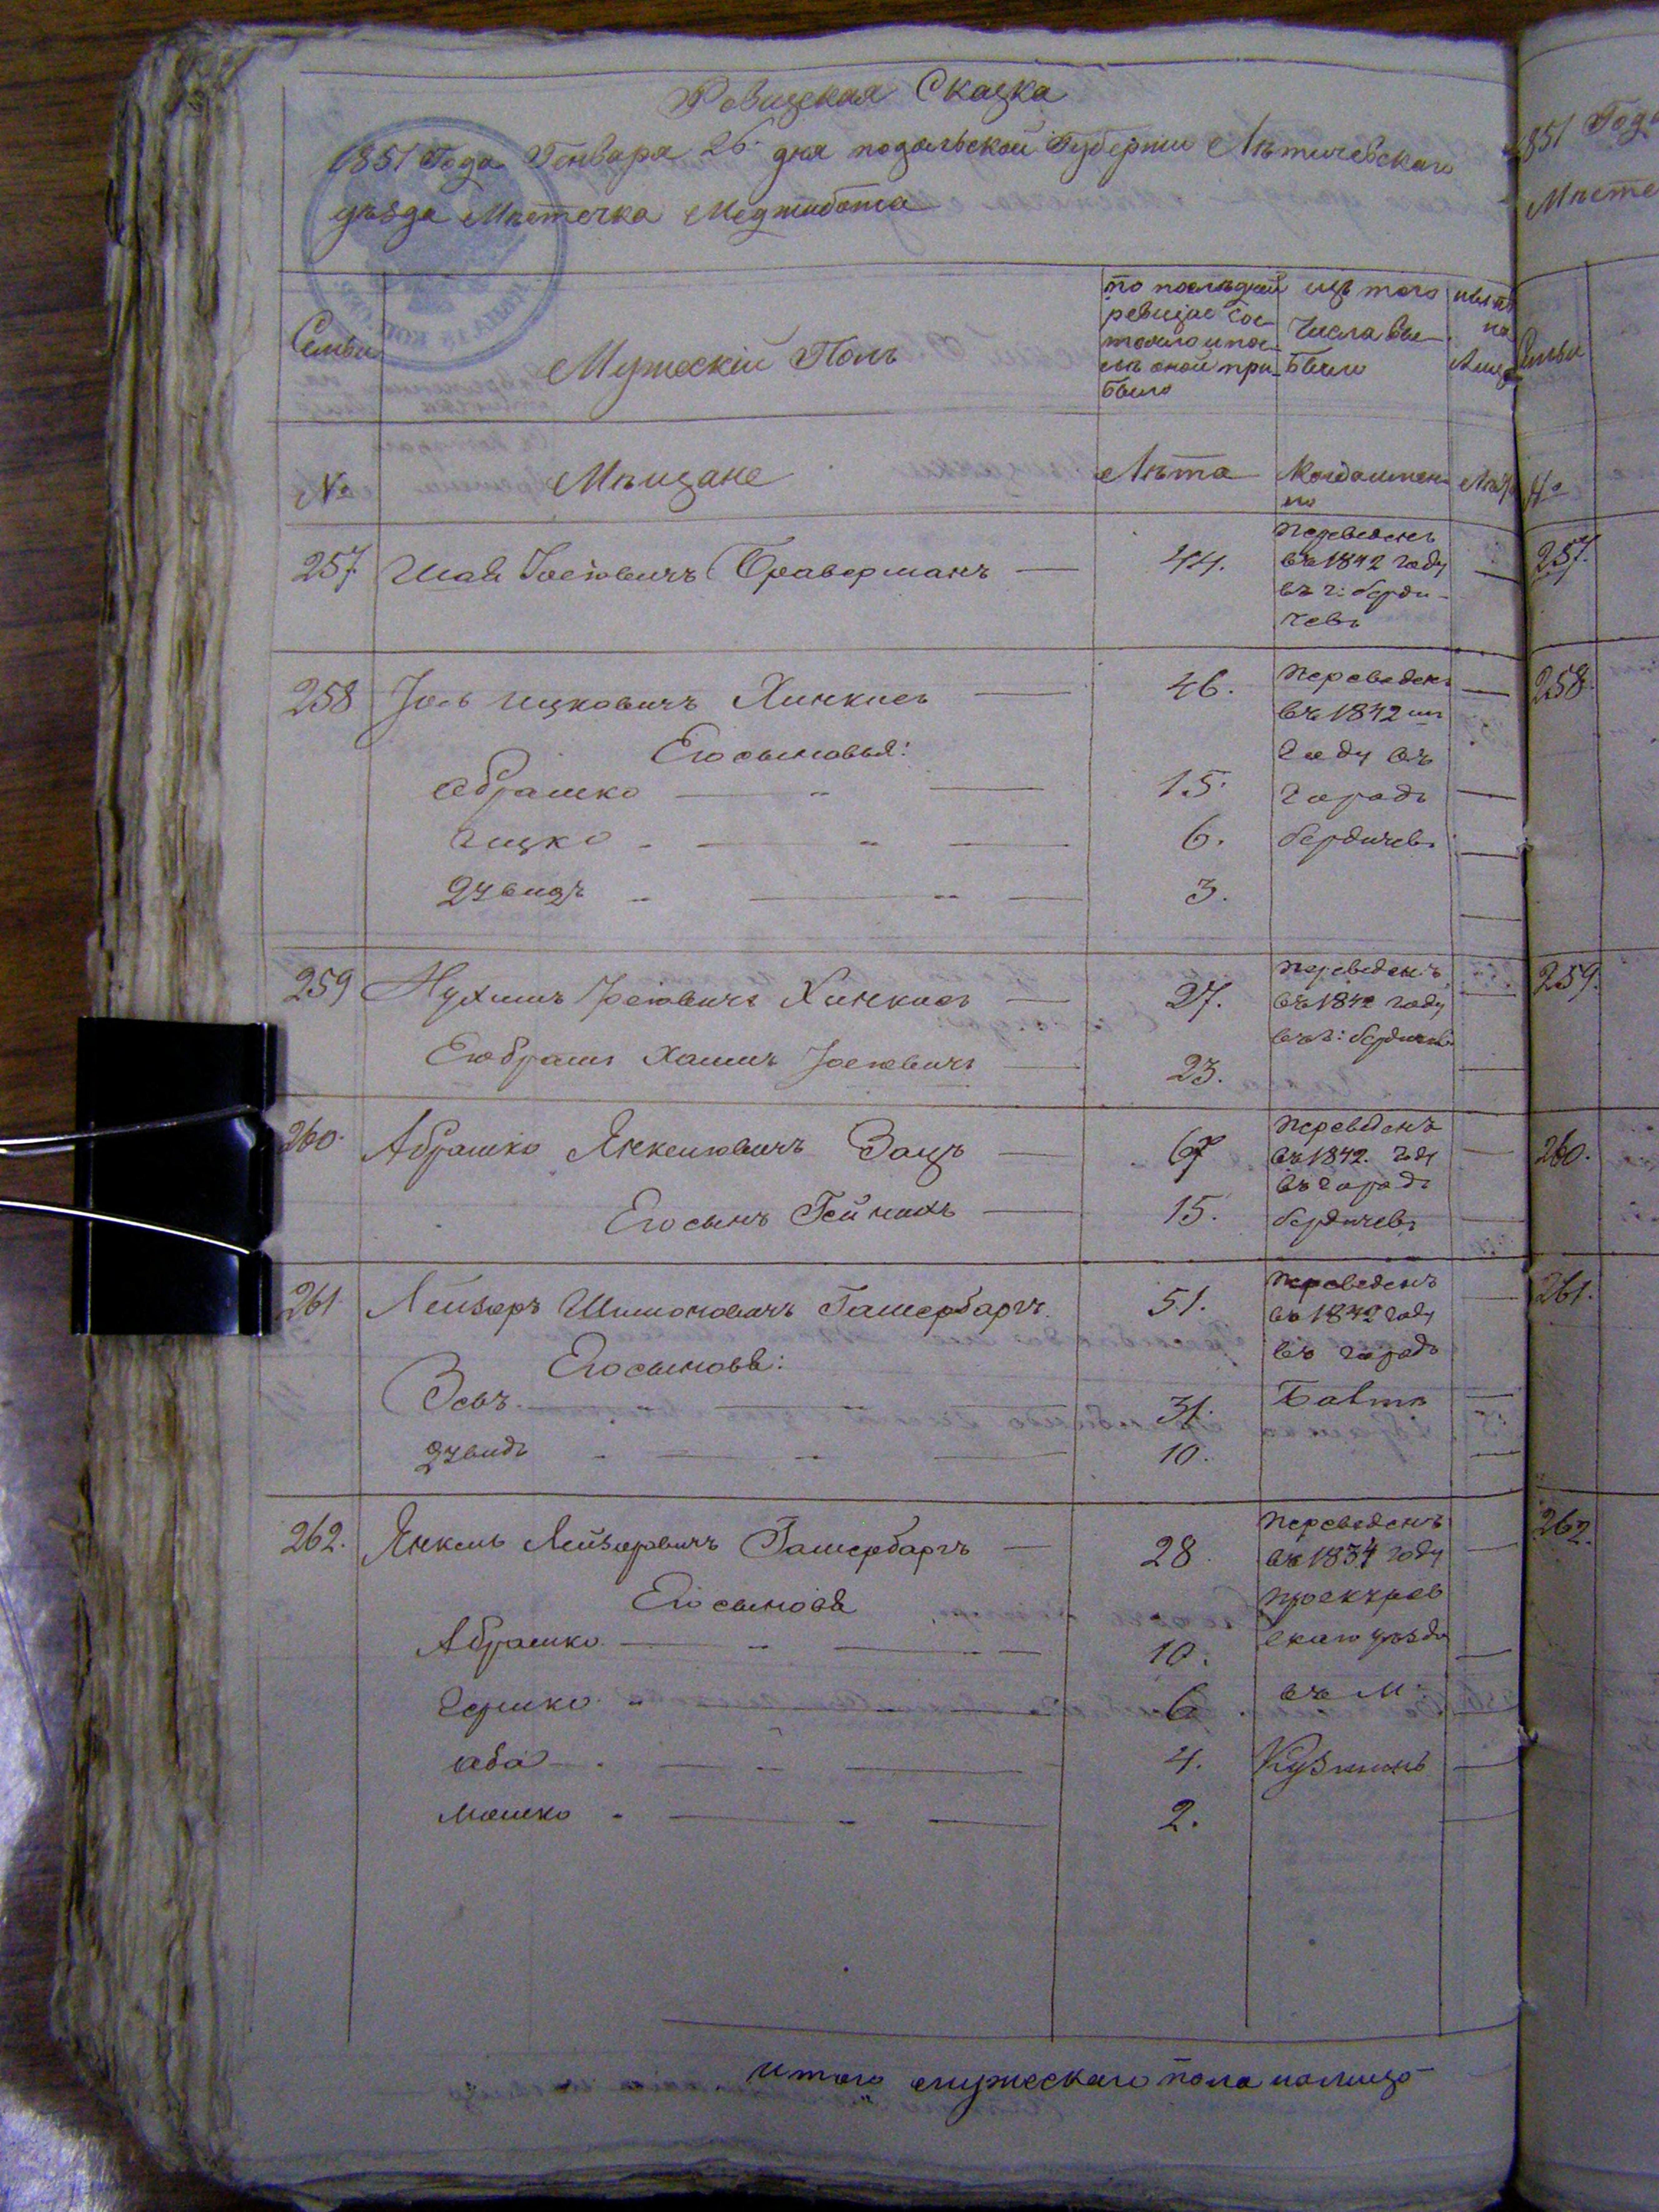 Ревизская Сказка
1851 Года Генваря 26 дня подольской Губернии Летичевскаго
уезда Местечка Меджибожа
Семьи
Мужескій Полъ
по последней
ревизіи сос-
тояло и пос-
ле оной при-
было
изъ того
Числа вы-
было
ныне
на
Лицо
№
Мещане
Лета
Когда имен-
но
Лета
257. Шая Іосіовичъ Браверманъ — 44.
Переведенъ
въ 1842 году
въ г: берди-
чевъ
258 Іось ицковичъ Хинкисъ — 46.
Переведенъ
въ 1842 мъ
Году въ
Городъ
бердичевъ
Его сыновья:
абрашко — 15.
ицко — 6.
дувидъ — 3.
259 Нухимъ Іосіовичъ Хинкисъ — 27.
Переведенъ
въ 1842 году
въ г: бердичевъ
Его братъ Хаимъ Іосіовичъ — 23.
260. Абрашко Янкеліовичъ Зацъ — 67
Переведенъ
въ 1842. году
въ городъ
бердичевъ
Его сынъ Гейнихъ — 15.
261 Лейзеръ Шимоновичъ Гашербаргъ. 51.
Переведенъ
въ 1842 году
въ городъ
Балта
Его сыновья:
Зевъ. — 31.
дувидъ — 10.
262. Янкель Лейзеровичъ Гашербаргъ — 28.
Переведенъ
въ 1834 году
проскуров
скаго уезда
въ м.
Кузминъ
Его сыновья
Абрашко — 10.
Гершко — 6
аба — 4.
мошко — 2.
итого мужескаго пола налицо
1851 Года
Месте
Семьи
№
257.
258.
259.
260.
261.
262.